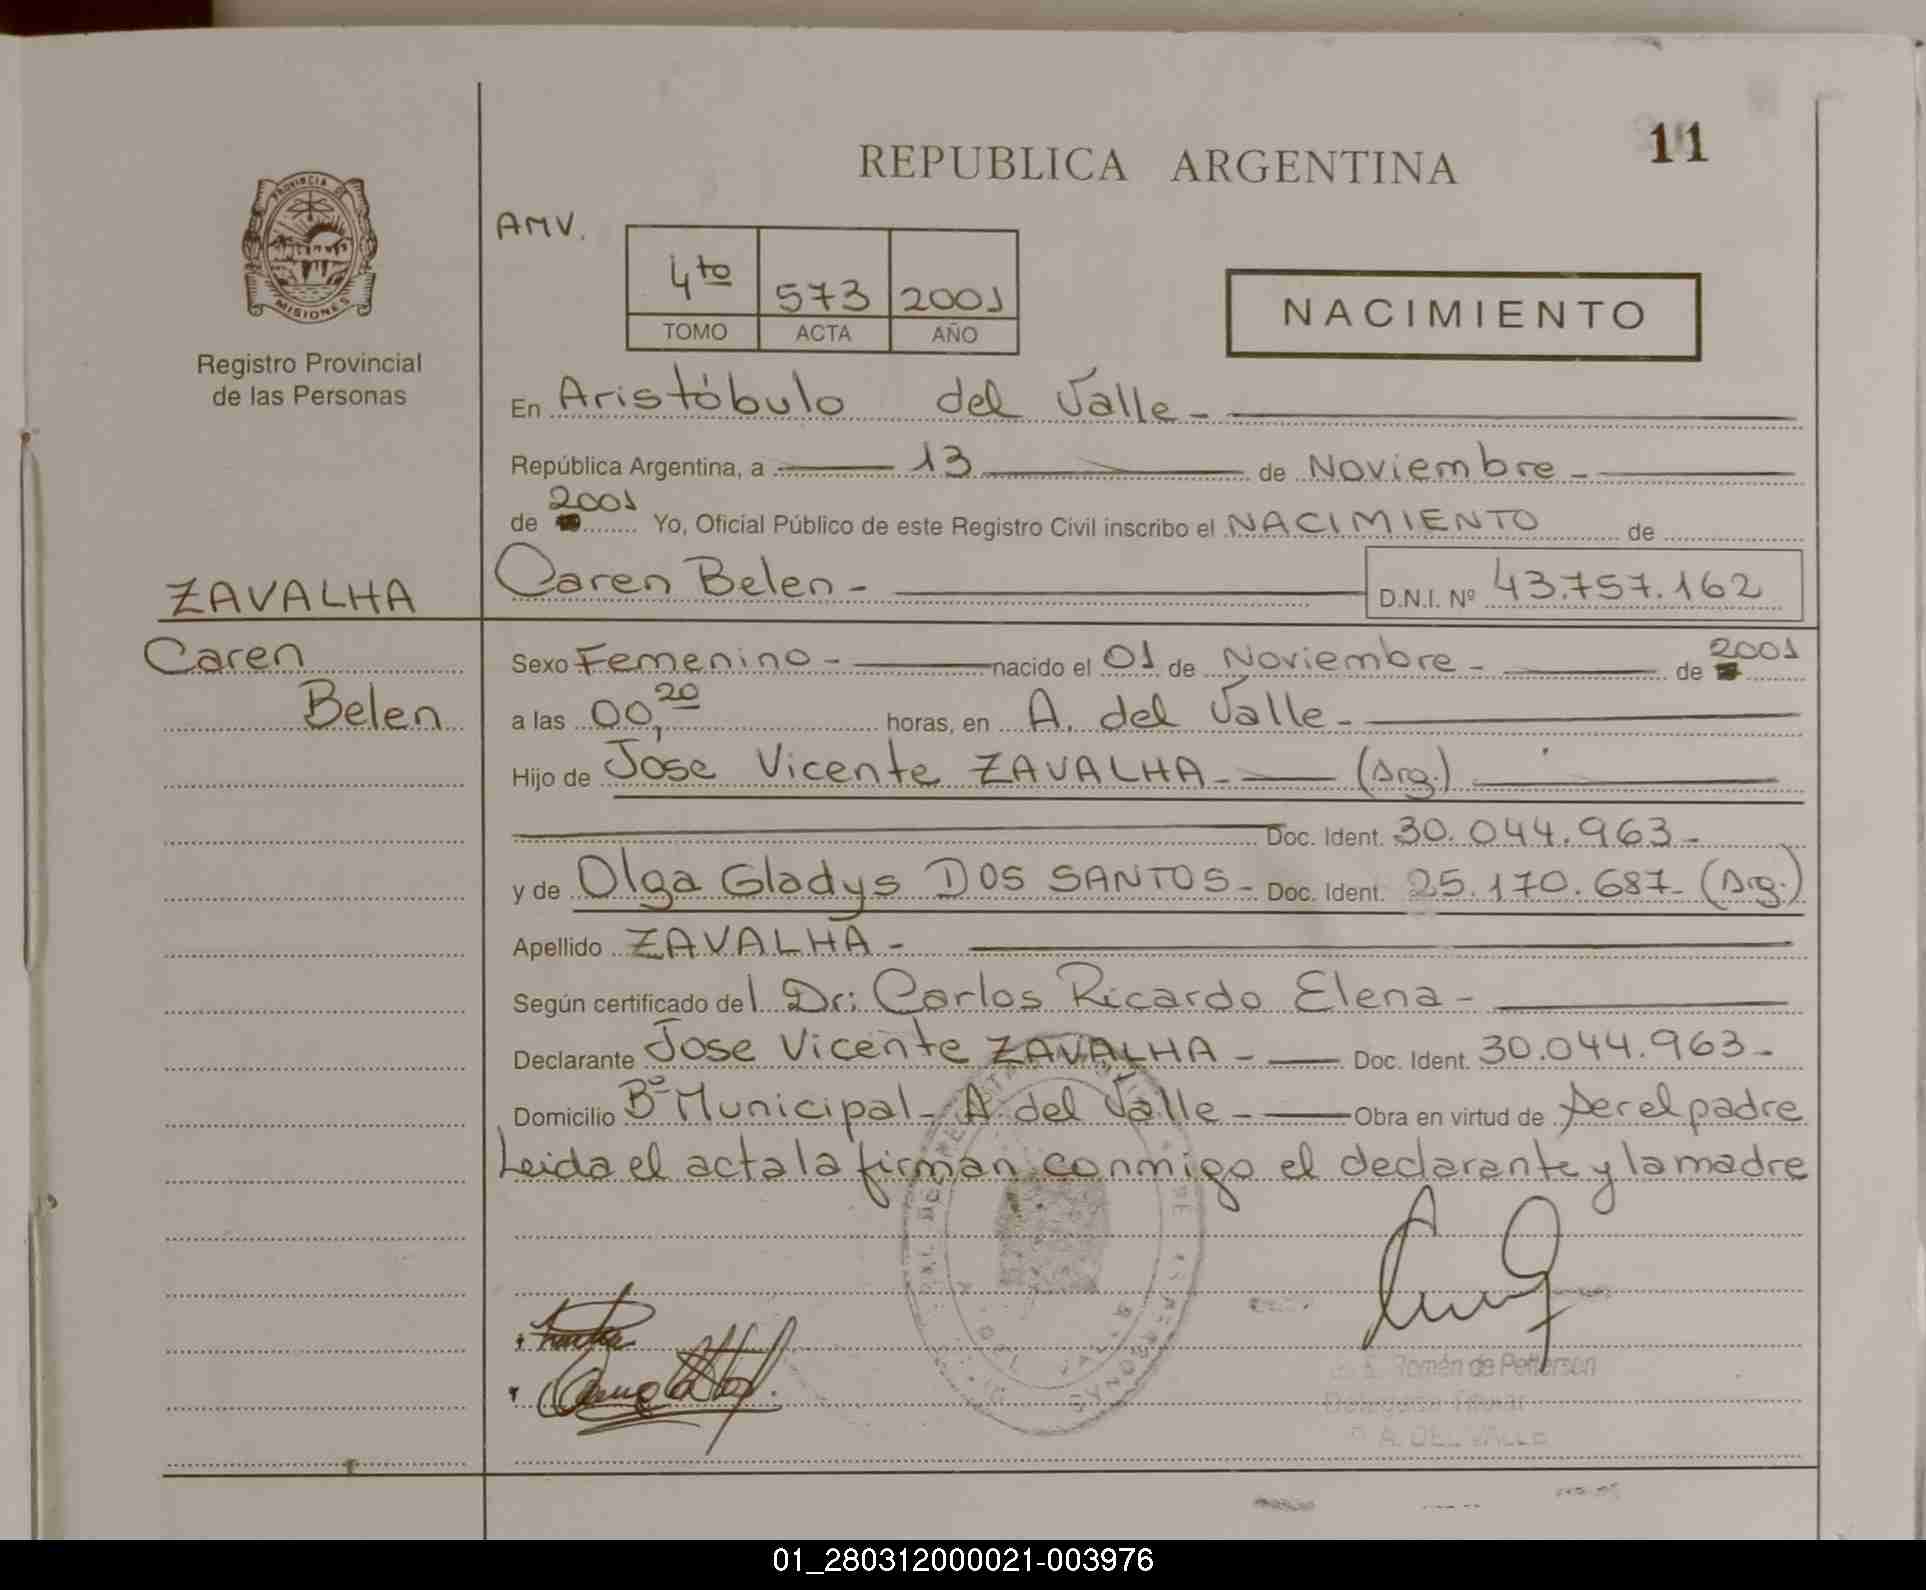 11
REPUBLICA ARGENTINA
PROVINCIA DE
MISIONES
Registro Provincial
de las Personas
AMV.
4to 573 2001
TOMO ACTA AÑO
NACIMIENTO
En Aristóbulo del Valle-
República Argentina, a 13 de Noviembre-
de 2001 Yo, Oficial Público de este Registro Civil inscribo el NACIMIENTO de
ZAVALHA Caren Belen- D.N.I. Nº 43.757.162
Caren Sexo Femenino- nacido el 01 de Noviembre- de 2001
Belen a las 00,20 horas, en A. del Valle-
Hijo de José Vicente ZAVALHA- (Arg.)
Doc. Ident. 30.044.963-
y de Olga Gladys DOS SANTOS- Doc. Ident. 25.170.687- (Arg.)
Apellido ZAVALHA-
Según certificado del Dr: Carlos Ricardo Elena-
Declarante Jose Vicente ZAVALHA- Doc. Ident. 30.044.963-
Domicilio Bº Municipal- A. del Valle- Obra en virtud de ser el padre
Leida el acta la firman conmigo el declarante y la madre
Román de Petterson
Delegada Titular
A. DEL VALLE
01_280312000021-003976